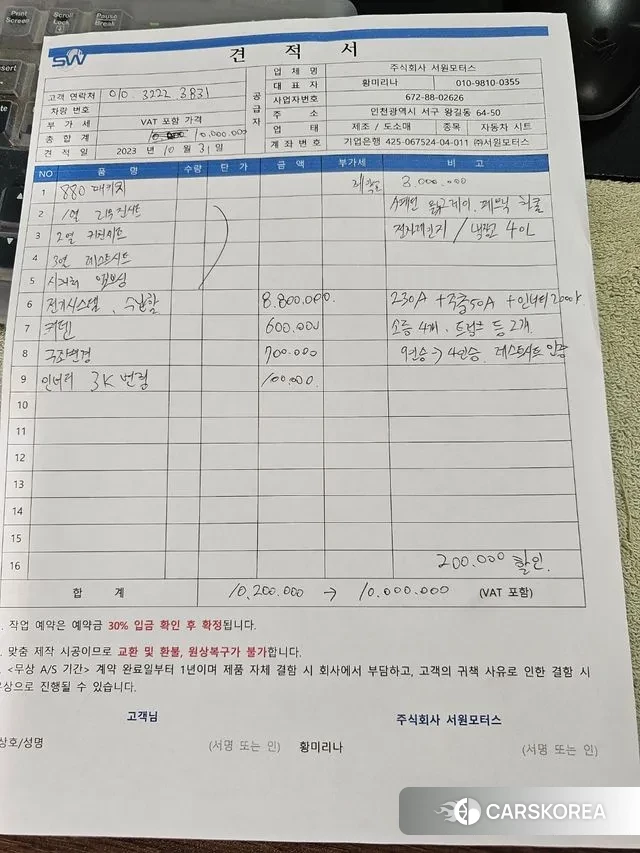 Print Screen
Scroll Lock
Pause Break
SW
견 적 서
고객 연락처 010. 3222. 3831
차량 번호
부 가 세 VAT 포함 가격
총 합 계 10.000.000
견 적 일 2023 년 10 월 31 일
공급자
업 체 명 주식회사 서원모터스
대 표 자 황미리나 010-9810-0355
사업자번호 672-88-02626
주 소 인천광역시 서구 왕길동 64-50
업 태 제조 / 도소매 종목 자동차 시트
계 좌 번 호 기업은행 425-067524-04-011 ㈜서원모터스
NO 품 명 수량 단 가 금 액 부가세 비 고
1 880 패키지 3.000.000
2 1열 리무진시트
3 2열 전자파인지 / 냉온 4인
4 3열
5
6 전기시스템, 8.800.000. 230A + 50A + 인버터 2000
7 커텐 600.000 소등 4개. 트렁크 등 2개.
8 구조변경 700.000 9인승 → 4인승.
9 인버터 3K 변경 100.000.
10
11
12
13
14
15
16 200.000 할인.
합 계 10.200.000 → 10.000.000 (VAT 포함)
. 작업 예약은 예약금 30% 입금 확인 후 확정됩니다.
. 맞춤 제작 시공이므로 교환 및 환불, 원상복구가 불가합니다.
. <무상 A/S 기간> 계약 완료일부터 1년이며 제품 자체 결함 시 회사에서 부담하고, 고객의 귀책 사유로 인한 결함 시
무상으로 진행될 수 있습니다.
고객님 주식회사 서원모터스
상호/성명 (서명 또는 인) 황미리나 (서명 또는 인)
CARSKOREA